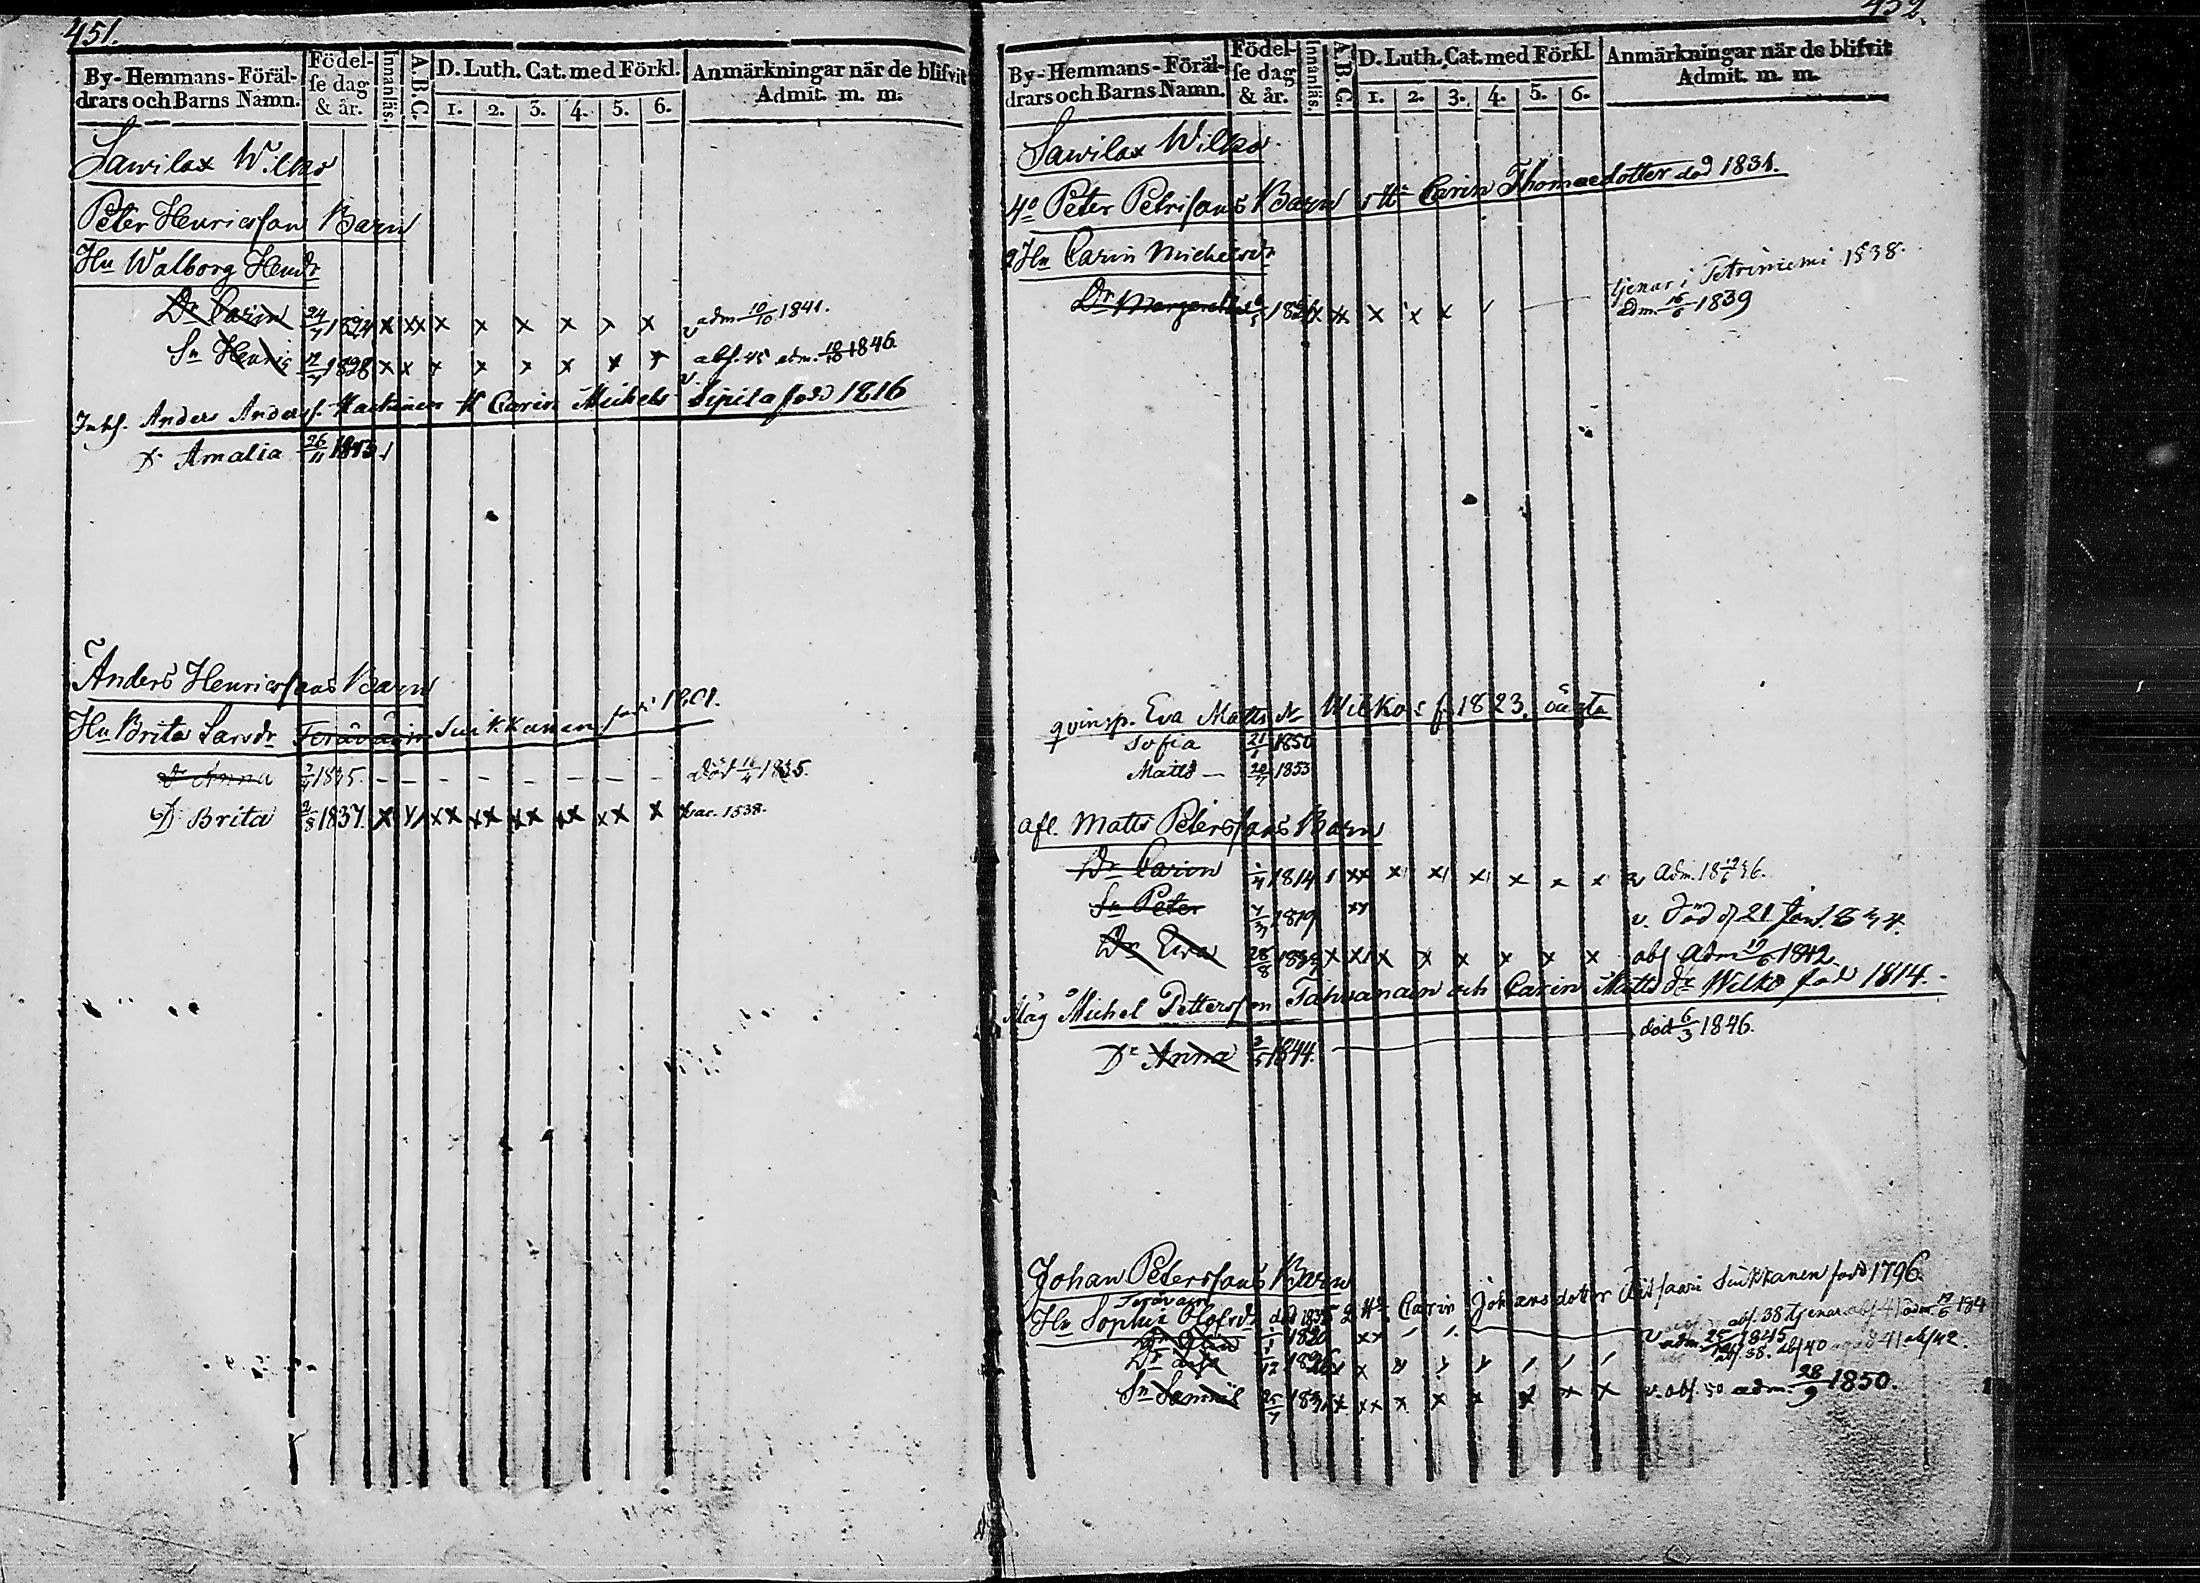 451.
By-Hemmans-Föräldrars och Barns Namn. Födelse dag & år. Innanläs. A.B.C. D. Luth. Cat. med Förkl. 1. 2. 3. 4. 5. 6. Anmärkningar när de blifvit Admit. m. m.
Sawilax Wilko
Peter Henricssons Barn
Hu Walborg Hendr
Dr Carin 24/7 1824 x xx x x x x x x v adm. 10/10 1841.
Sn Henric 12/7 1828 x x x x x x x x abs. 45 adm. 18/10 1846.
Inhs. Anders Anderss. H Carin Michels Sipila född 1816
Dr Amalia 26/11 1843
Anders Henricssons Barn
Hu Brita Larsdr Teräväin Suikkanen född 1801.
Dr Anna 1835 — — — — — — — död 16/4 1835.
Dr Brita 2/8 1837. x xx xx xx xx xx x vac. 1838.
452.
By-Hemmans-Föräldrars och Barns Namn. Födelse dag & år. Innanläs. A.B.C. D. Luth. Cat. med Förkl. 1. 2. 3. 4. 5. 6. Anmärkningar när de blifvit Admit. m. m.
Sawilax Wilko
Peter Petrissons Barn 1 Hu Carin Thomaedotter död 1831.
2 Hu Carin Michelsdr
tjenar i Tetriniemi 1838.
Dr Margareta x x x x adm. 16/6 1839
qvinsp. Eva Matts dr Wilko f. 1823. oägta
Sofia 21/1 1850
Matts — 1853
afl. Matts Peterssons Barn
Dr Carin 1/4 1814 xx x x x x x x v adm. 18 36.
Sn Peter 1819 xx v. död d 21 Jan. 834.
Dr Eva 28/8 1823 x xx x x x x x x abs adm 19/6 1842.
Måg Michel Pettersson Tahvanain och Carin Mattsdr Wilko född 1814.
död 6/3 1846.
Dr Anna 1844.
Johan Peterssons Barn
Teräväin
Hu Sophia Olofsdr död 1835 2 Hu Carin Johansdotter Suikkanen född 1796.
1820 xx abs. 38 tjenar abs 41 adm. 19/6 184
v adm. 25/ 1845
Dr 1826 x abs. 38. abs 40 41 abs 42.
Sn Samuel 25/7 183 x xx x x x x x x v. abs. 50 adm. 28/9 1850.